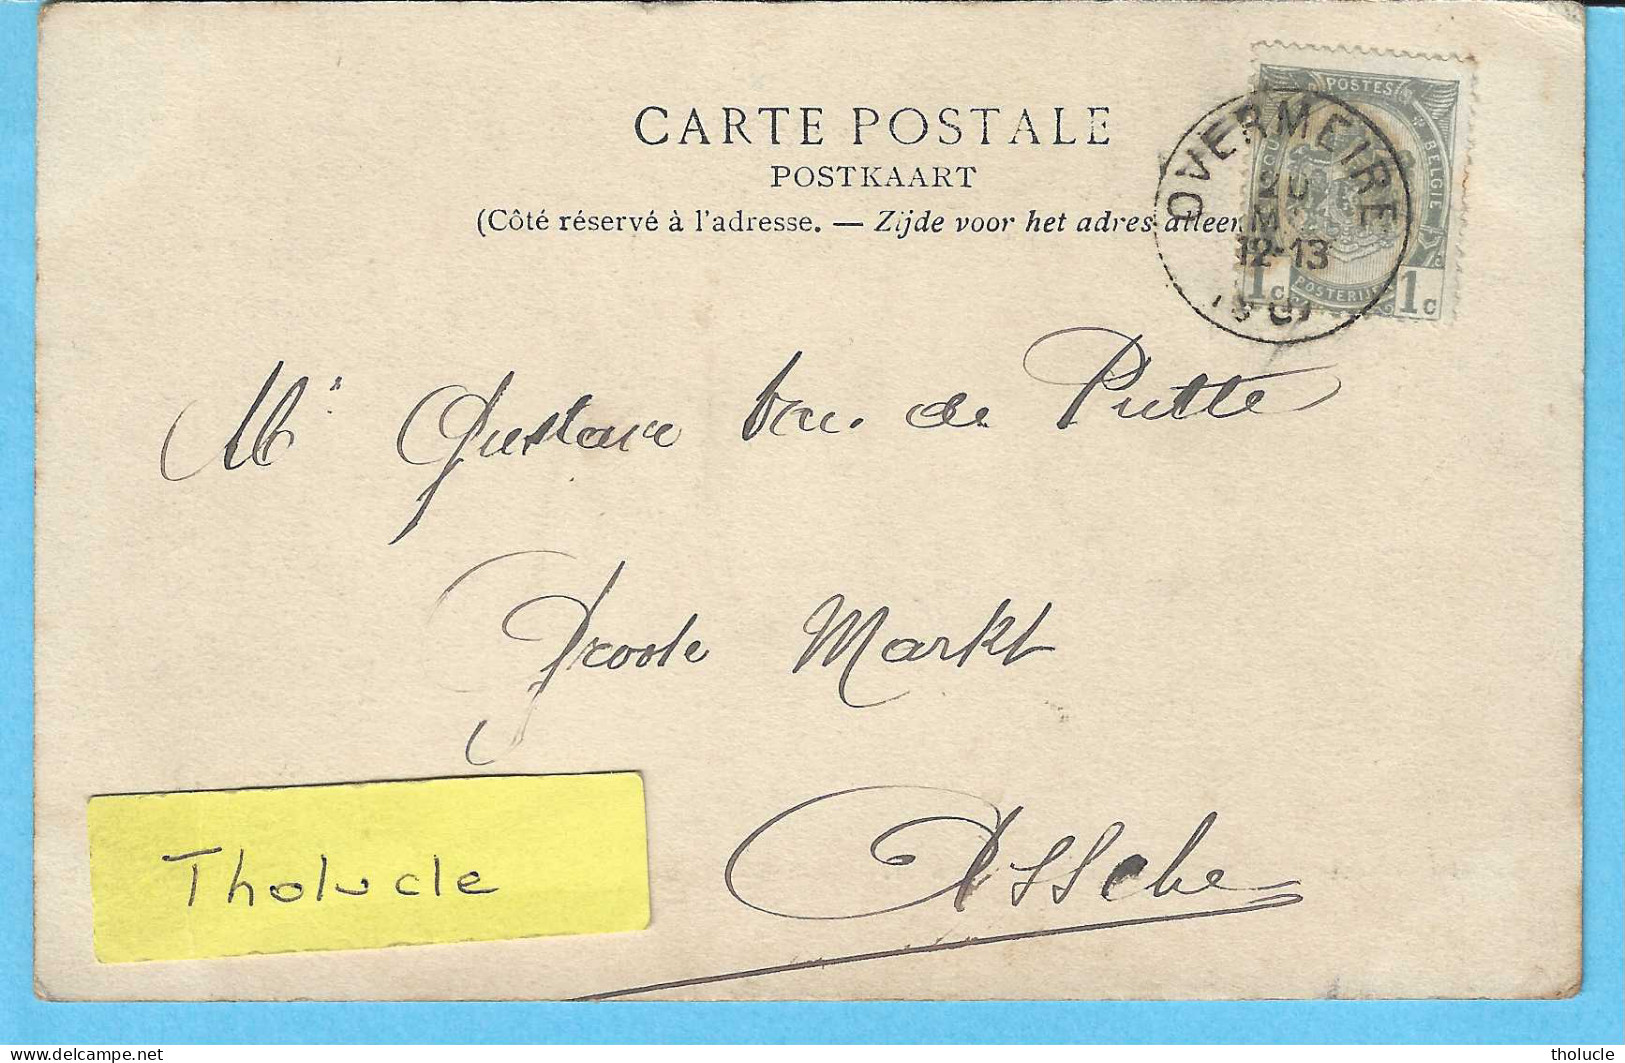 CARTE POSTALE
POSTKAART
(Côté réservé à l'adresse. — Zijde voor het adres alleen
OVERMEIRE
12-13
1901
POSTES
BELGIE
POSTERIJEN
1c 1c
Mr Gustave Van de Putte
Groote Markt
Assche
Tholucle
tholucle